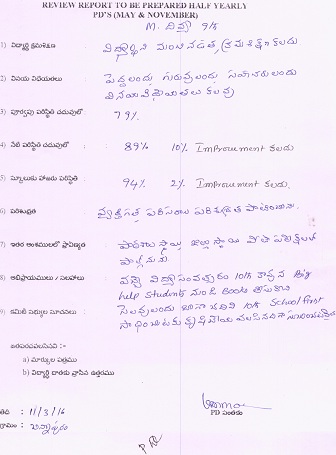 REVIEW REPORT TO BE PREPARED HALF YEARLY
PD'S (MAY & NOVEMBER)
M. దివ్య 9/5
1) విద్యార్థి క్రమశిక్షణ : విద్యార్థిని మంచి నడత, క్రమశిక్షణ కలదు
2) వినయ విధేయతలు : పెద్దలందు, గురువులందు, సహచరులందు
వినయవిధేయతలు కలవు
3) పూర్వపు పరిస్థితి చదువులో : 79%
4) నేటి పరిస్థితి చదువులో : 89% 10% Improvement కలదు
5) స్కూలుకు హాజరు పరిస్థితి : 94% 2% Improvement కలదు.
6) పరిశుభ్రత : వ్యక్తిగత, పరిసరాల పరిశుభ్రత పాటించును.
7) ఇతర అంశములలో ప్రావిణ్యత : పాఠశాల స్థాయి జిల్లా స్థాయి పోటీ పరీక్షలలో
పాల్గొనును.
8) అభిప్రాయములు / సలహాలు : వచ్చే విద్యా సంవత్సరం 10th క్లాసు
help students నుండి Books తీసుకొని
9) కమిటీ సభ్యుల సూచనలు : సెలవులందు బాగా చదివి 10th School first
సాధించుటకు కృషి చేయ వలసినదిగా
జతపరచవలసినవి :-
a) మార్కుల పత్రము
b) విద్యార్థి దాతకు వ్రాసిన ఉత్తరము
తేది : 11/3/16
గ్రామం :
PD సంతకం